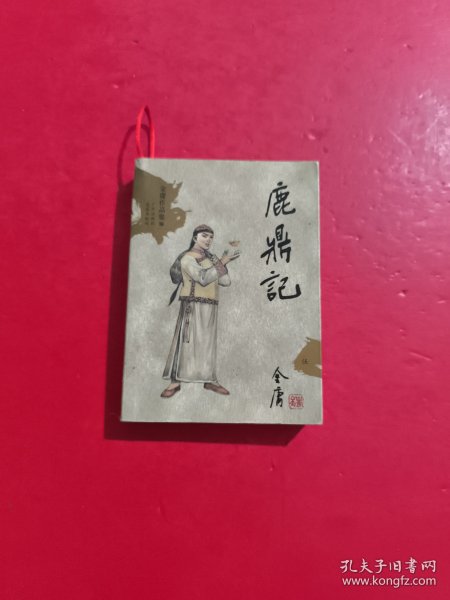 鹿鼎記
伍
金庸
金庸作品集
孔夫子旧书网
www.kongfz.com